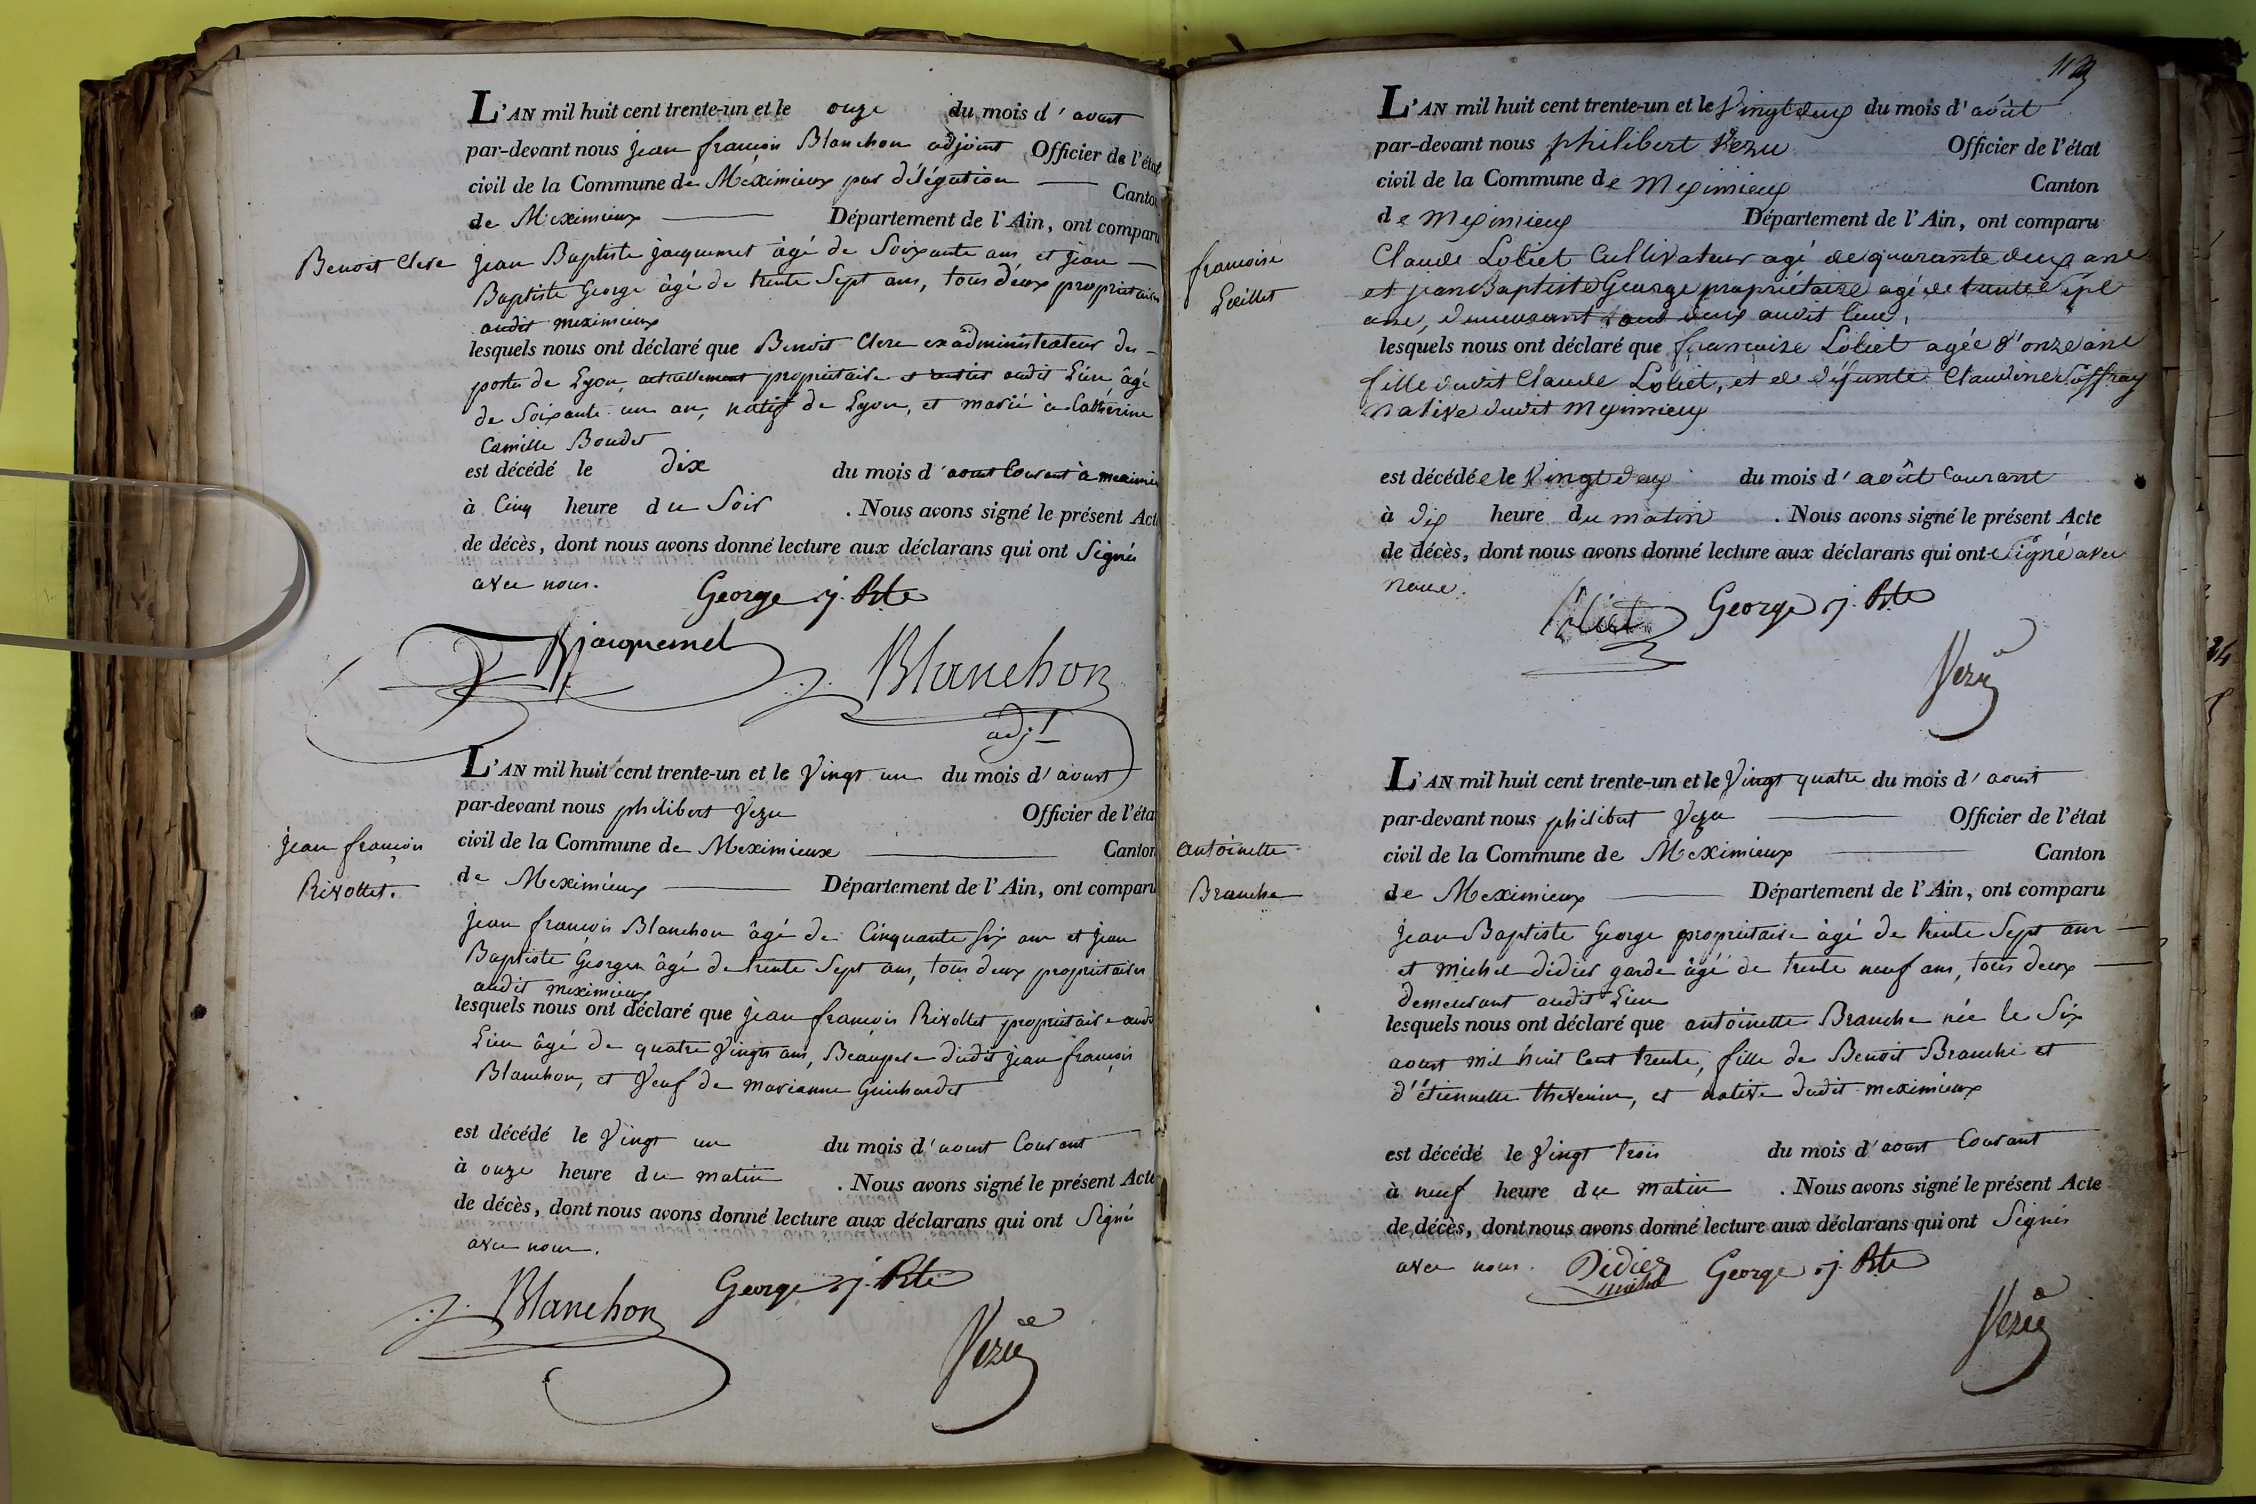 L'AN mil huit cent trente-un et le onze du mois d'aoust
par-devant nous jean françois Blanchon adjoint Officier de l'état
civil de la Commune de Meximieux par délégation Canton
de Meximieux Département de l'Ain, ont comparu
Benoit Clere
jean Baptiste jacquemet âgé de Soixante ans et jean
Baptiste George âgé de trente Sept ans, tous deux propriétaires
audit meximieux
lesquels nous ont déclaré que Benoit Clere exadministrateur des
postes de Lyon, actuellement propriétaire audit Lieu, âgé
de Soixante un an, natif de Lyon, et marié à Cathérine
Camille Boudet
est décédé le dix du mois d'aoust Courant à meximieux
à Cinq heure du Soir . Nous avons signé le présent Acte
de décès, dont nous avons donné lecture aux déclarans qui ont Signés
avec nous.
George j. Bte
Bjacquemet
j. Blanchon
adjt
L'AN mil huit cent trente-un et le Vingt un du mois d'aoust
par-devant nous philibert Vezu Officier de l'état
civil de la Commune de Meximieux Canton
de Meximieux Département de l'Ain, ont comparu
jean françois
Rivollet.
jean françois Blanchon âgé de Cinquante Six ans et jean
Baptiste George âgé de trente Sept ans, tous deux propriétaires
audit meximieux
lesquels nous ont déclaré que jean françois Rivollet propriétaire audit
Lieu âgé de quatre Vingts ans, Beaupere dudit jean françois
Blanchon, et Veuf de marianne Guichardet
est décédé le Vingt un du mois d'aoust Courant
à onze heure du matin . Nous avons signé le présent Acte
de décès, dont nous avons donné lecture aux déclarans qui ont Signés
avec nous.
j. Blanchon George j. Bte
Vezu
113
L'AN mil huit cent trente-un et le Vingt deux du mois d'août
par-devant nous philibert Vezu Officier de l'état
civil de la Commune de Meximieux Canton
de Meximieux Département de l'Ain, ont comparu
françoise
Loeillet
Claude Loliet Cultivateur agé de quarante deux ans
et jean Baptiste George propriétaire agé de trente Sept
ans, demeurant tous deux audit lieu,
lesquels nous ont déclaré que françoise Loliet agée d'onze ans
fille dudit Claude Loliet, et de défunte Claudine Soffray
native dudit Meximieux
est décédée le Vingt deux du mois d'août Courant
à dix heure du matin . Nous avons signé le présent Acte
de décès, dont nous avons donné lecture aux déclarans qui ont Signé avec
nous.
Loliet George j. Bte
Vezu
L'AN mil huit cent trente-un et le Vingt quatre du mois d'aoust
par-devant nous philibert Vezu Officier de l'état
civil de la Commune de Meximieux Canton
de Meximieux Département de l'Ain, ont comparu
antoinette
Branche
jean Baptiste George propriétaire âgé de trente Sept ans
et michel didier garde âgé de trente neuf ans, tous deux
demeurant audit Lieu
lesquels nous ont déclaré que antoinette Branche née le Six
aoust mil huit Cent trente, fille de Benoit Branche et
d'étiennette thevenin, et native dudit meximieux
est décédé le Vingt trois du mois d'aoust Courant
à neuf heure du matin . Nous avons signé le présent Acte
de décès, dont nous avons donné lecture aux déclarans qui ont Signés
avec nous. Didier George j. Bte
michel
Vezu